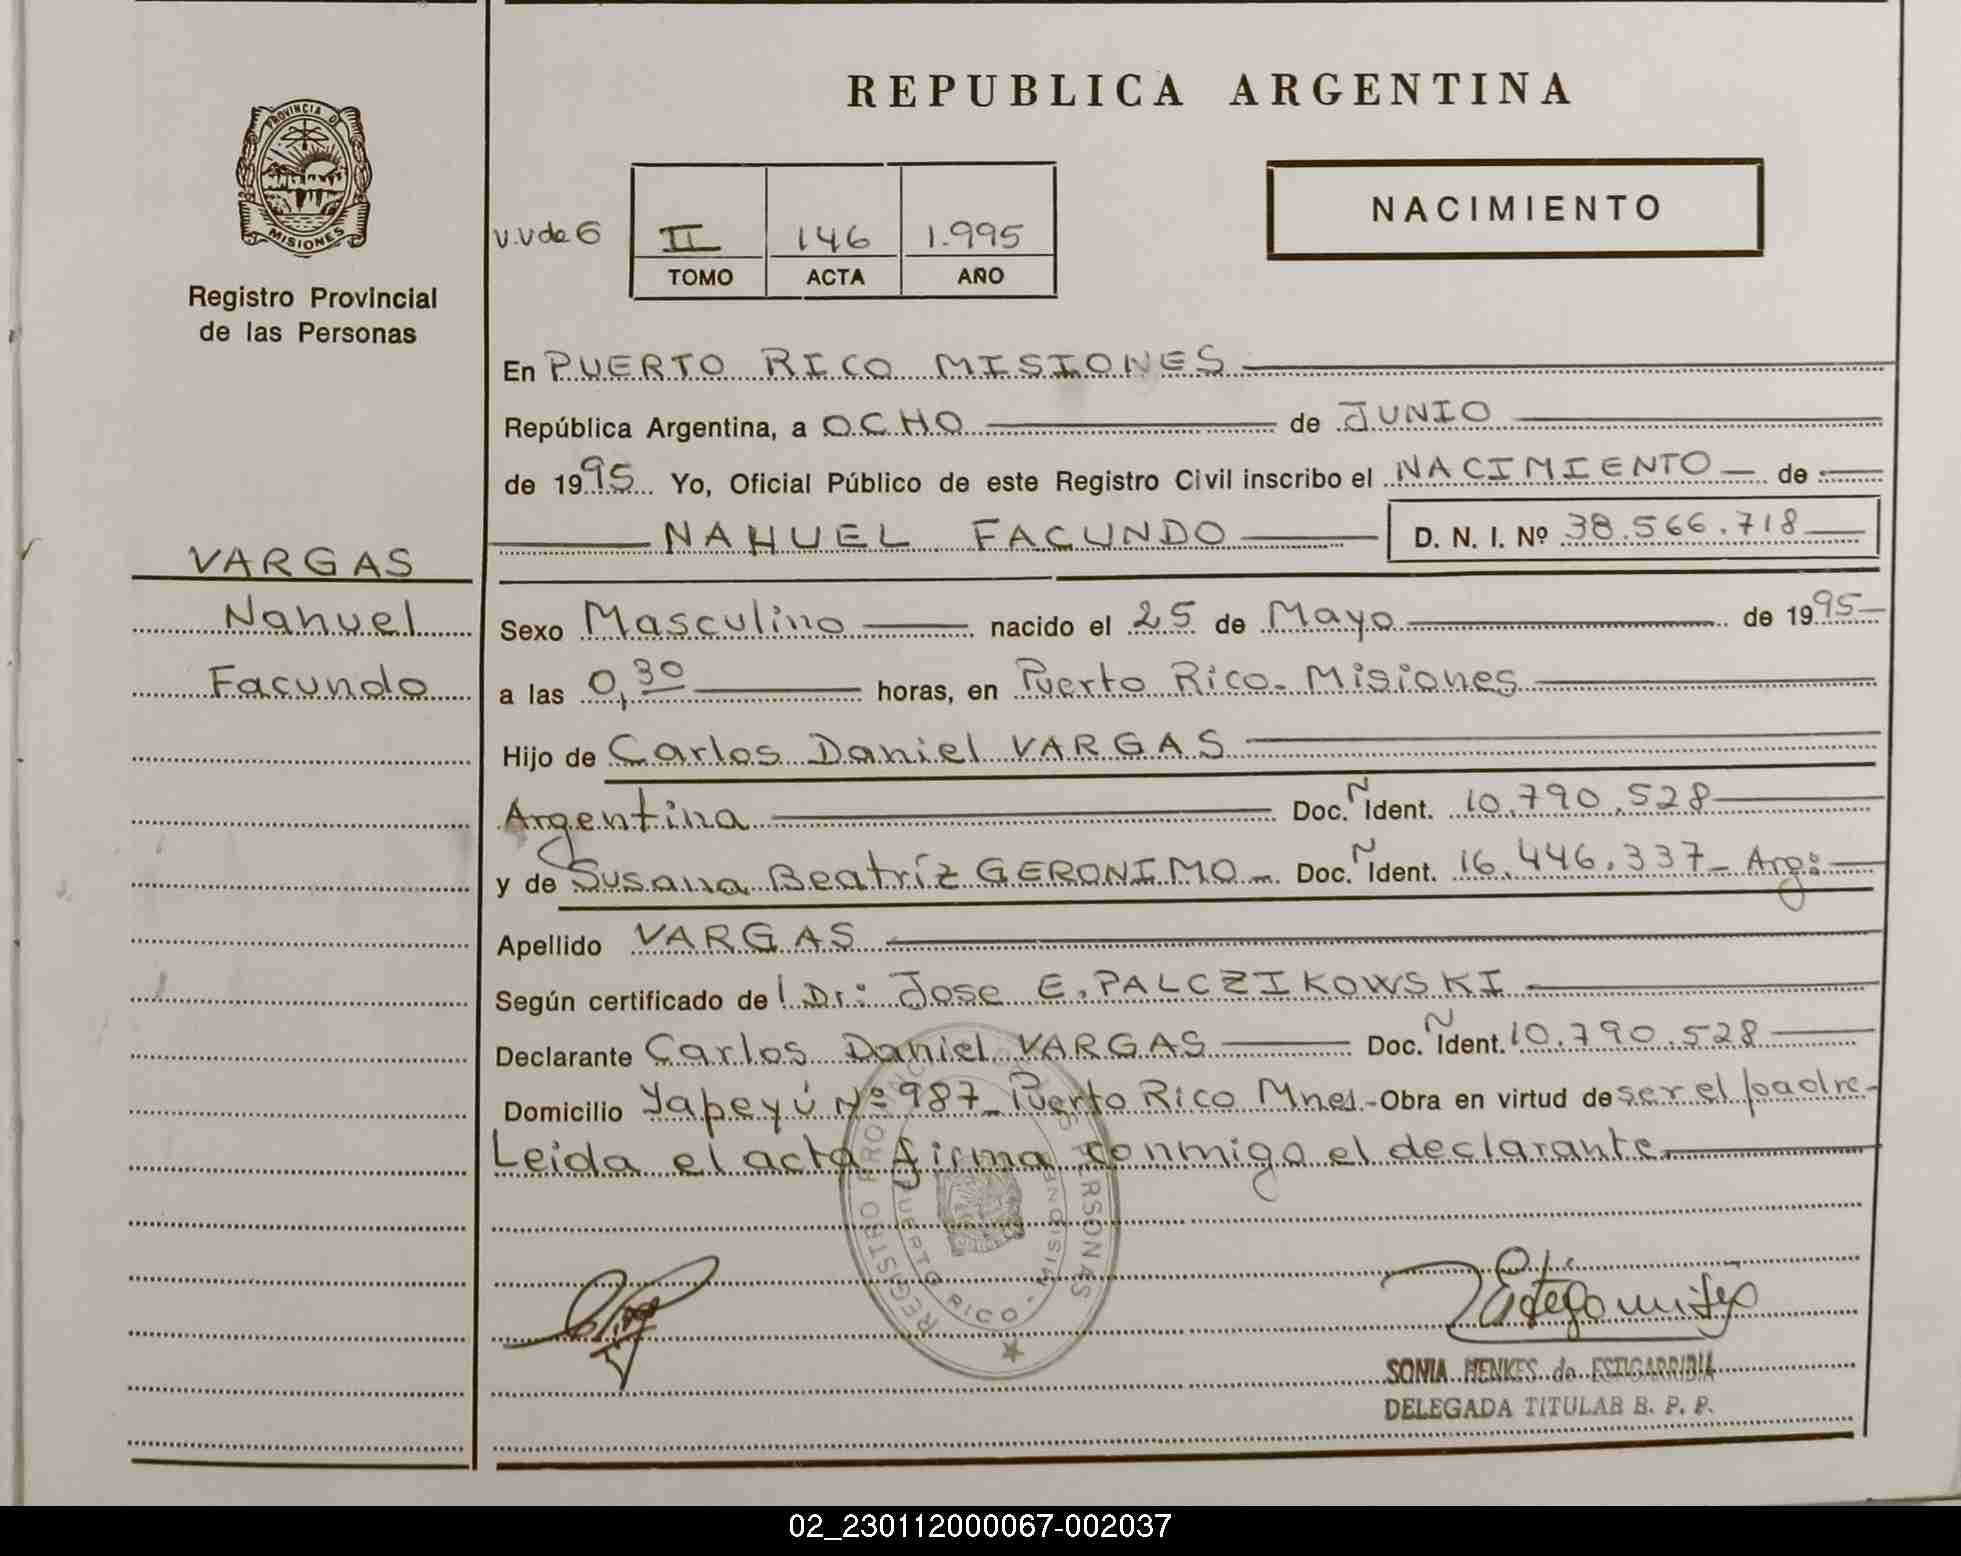 REPUBLICA ARGENTINA
PROVINCIA D
MISIONES
Registro Provincial
de las Personas
v.v de 6
II 146 1.995
TOMO ACTA AÑO
NACIMIENTO
En PUERTO RICO MISIONES
República Argentina, a OCHO de JUNIO
de 1995 Yo, Oficial Público de este Registro Civil inscribo el NACIMIENTO de
NAHUEL FACUNDO D. N. I. Nº 38.566.718
VARGAS
Nahuel
Facundo
Sexo Masculino nacido el 25 de Mayo de 1995
a las 0,30 horas, en Puerto Rico - Misiones
Hijo de Carlos Daniel VARGAS
Argentina Doc. N Ident. 10.790.528
y de Susana Beatríz GERONIMO - Doc. N Ident. 16.446.337 - Arg:
Apellido VARGAS
Según certificado de l Dr: Jose E. PALCZIKOWSKI
Declarante Carlos Daniel VARGAS Doc. N Ident. 10.790.528
Domicilio Yapeyú Nº 987 - Puerto Rico Mnes - Obra en virtud de ser el padre -
Leida el acta firma conmigo el declarante
REGISTRO PROVINC PERSONAS
PUERTO RICO - MISIONES
SONIA HENKES de ESTIGARRIBIA
DELEGADA TITULAR R. P. P.
02_230112000067-002037